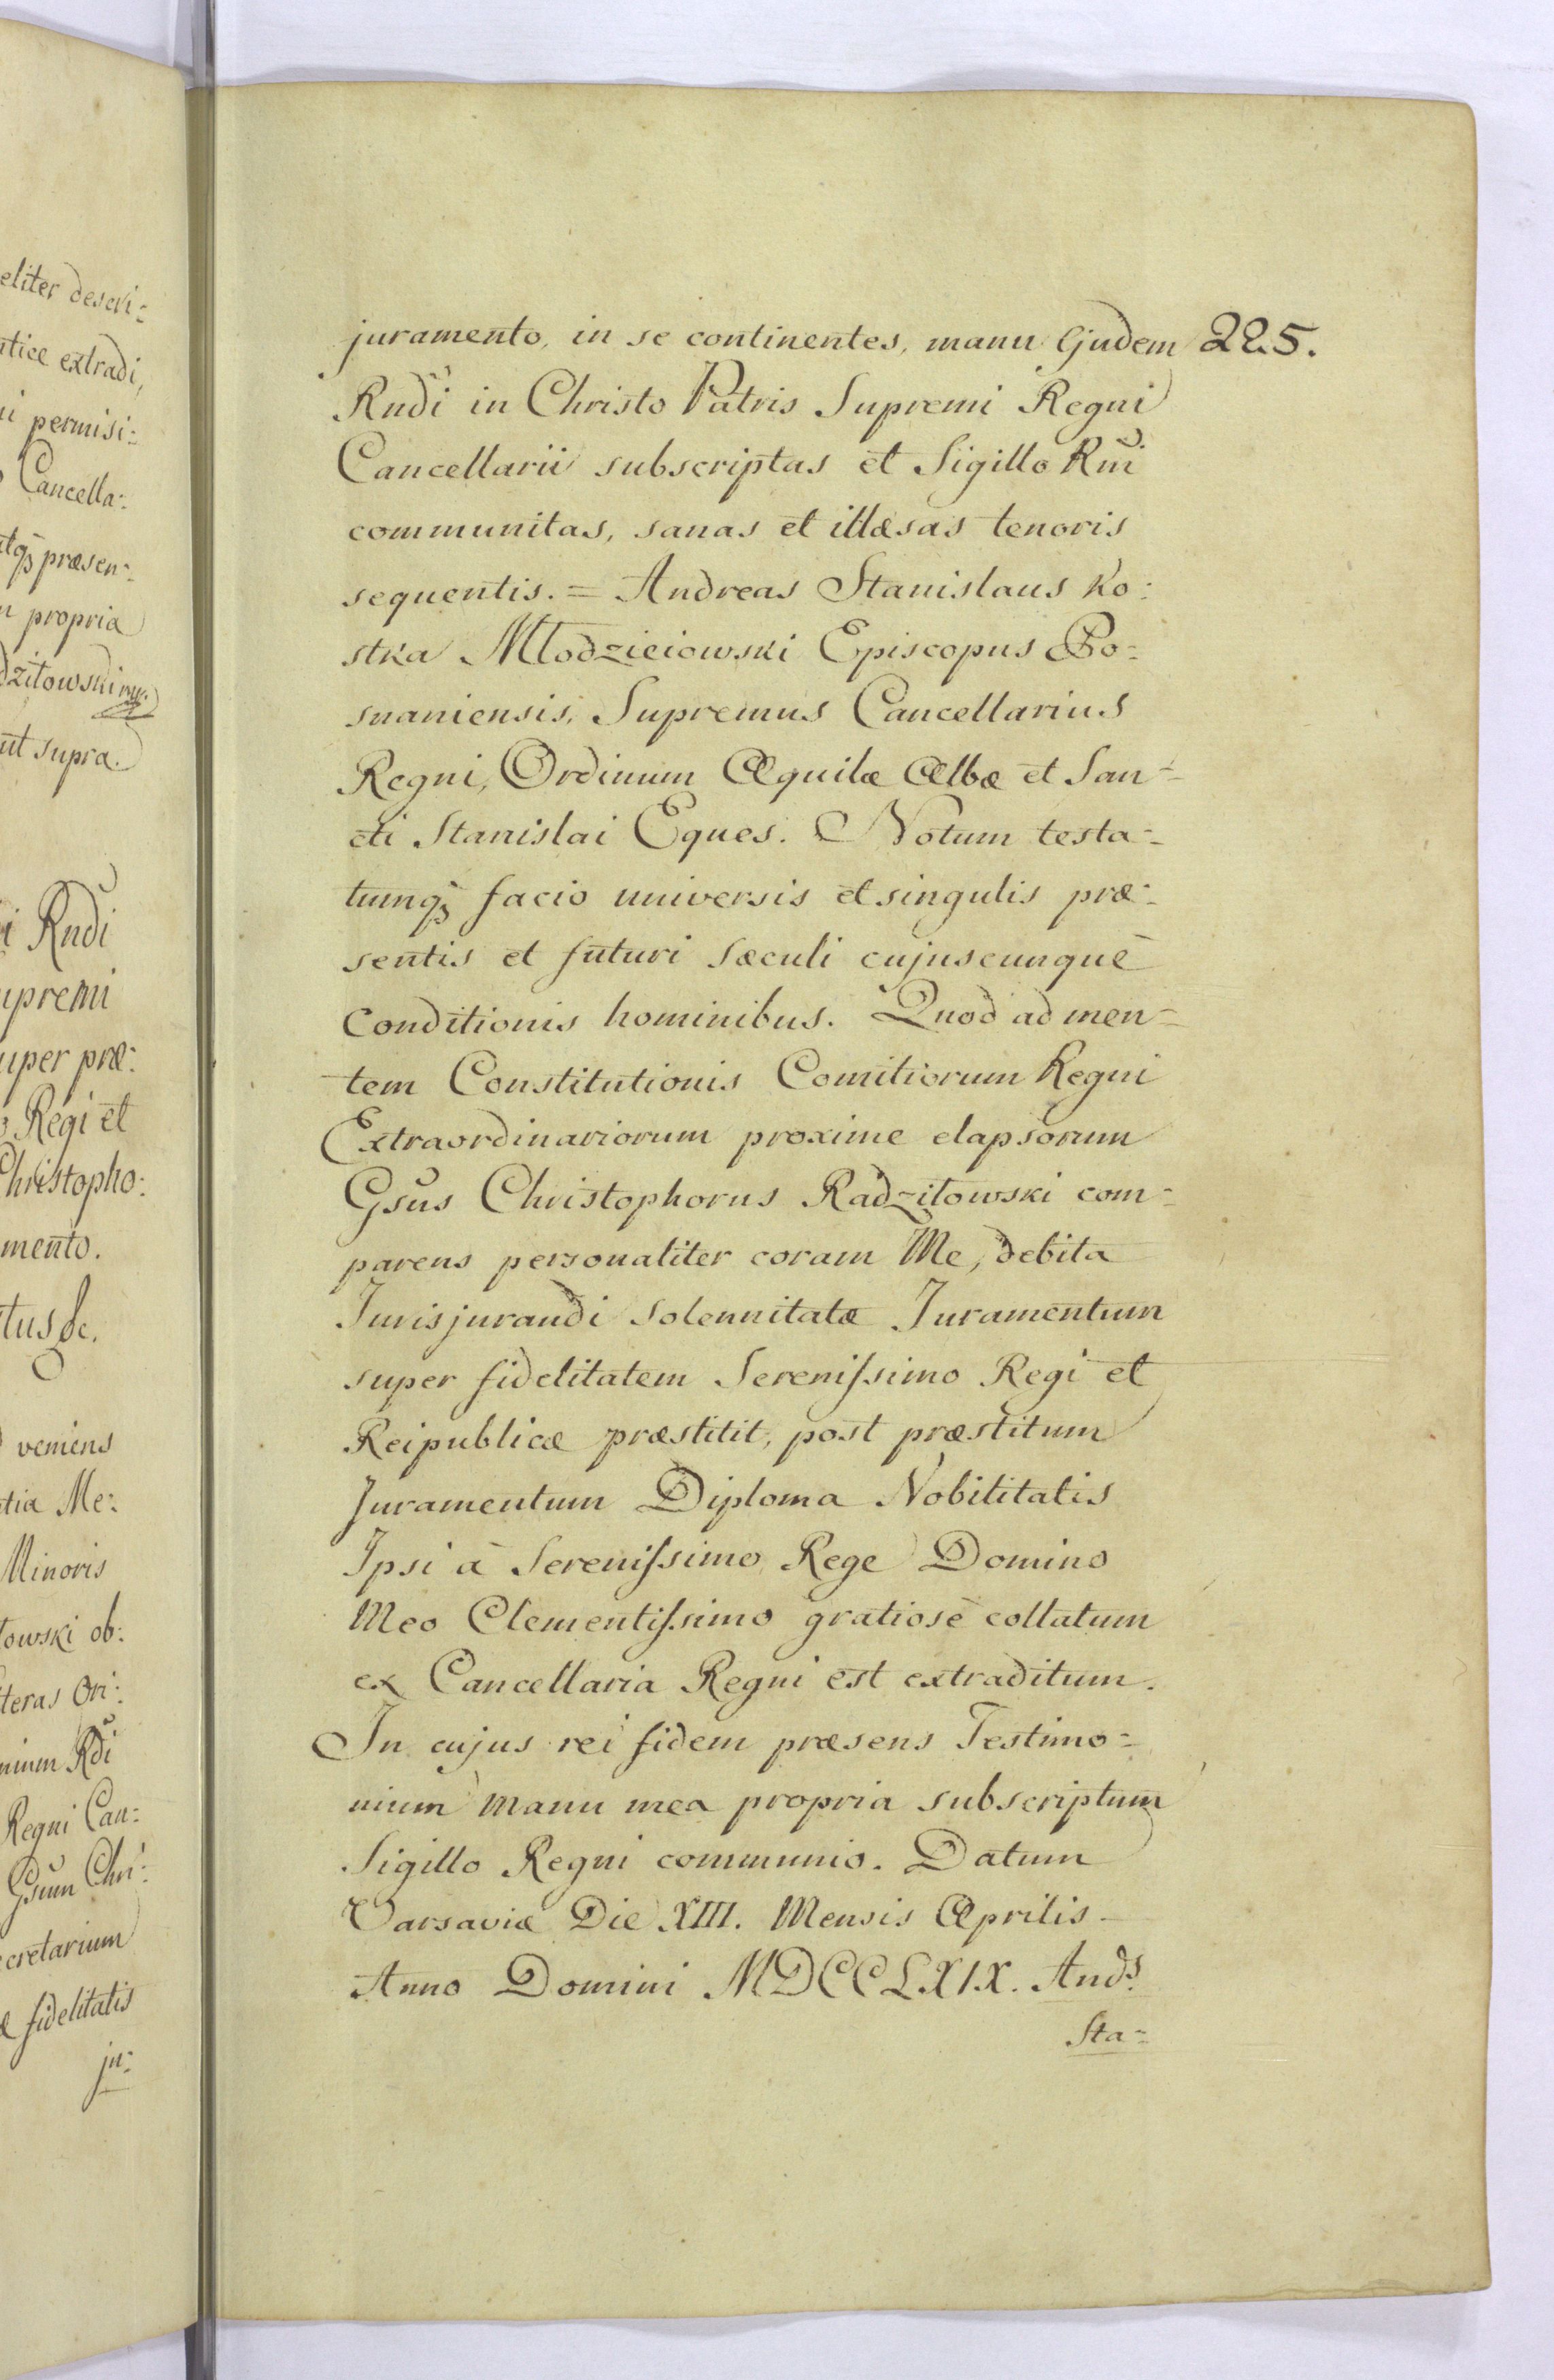 eliter descri:
ntice extradi,
ui permisi:
Cancella:
atqȝ præsen:
n propria
dziłowski mp.
ut supra.
i Rndi
upremi
uper præ:
Regi et
Christopho:
mento.
tus &c.
veniens
tia Me:
Minoris
łowski ob:
tteras Ori:
nium Rdi
Regni Can:
Gsum Chri:
ecretarium
æ fidelitatis
ju:
juramento, in se continentes, manu Ejudem 225.
Rndi in Christo Patris Supremi Regni
Cancellarii subscriptas et Sigillo Rni
communitas, sanas et illæsas tenoris
sequentis. = Andreas Stanislaus Ko:
stka Młodzieiowski Episcopus Po=
snaniensis, Supremus Cancellarius
Regni, Ordinum Aquilæ Albæ et San=
cti Stanislai Eques. Notum testa=
tumqȝ facio universis et singulis præ=
sentis et futuri sæculi cujuscunquè
Conditionis hominibus. Quod ad men=
tem Constitutionis Comitiorum Regni
Extraordinariorum proxime elapsorum
Gsus Christophorus Radziłowski com=
parens personaliter coram Me, debita
Jurisjurandi solennitatæ Juramentum
super fidelitatem Serenissimo Regi et
Reipublicæ præstitit, post præstitum
Juramentum Diploma Nobilitatis
Ipsi à Serenissimo Rege Domino
Meo Clementissimo gratiosè collatum
ex Cancellaria Regni est extraditum.
In cujus rei fidem præsens Testimo=
nium manu mea propria subscriptum
Sigillo Regni communio. Datum
Varsaviæ Die XIII. Mensis Aprilis
Anno Domini MDCCLXIX. Andˢ.
Sta=